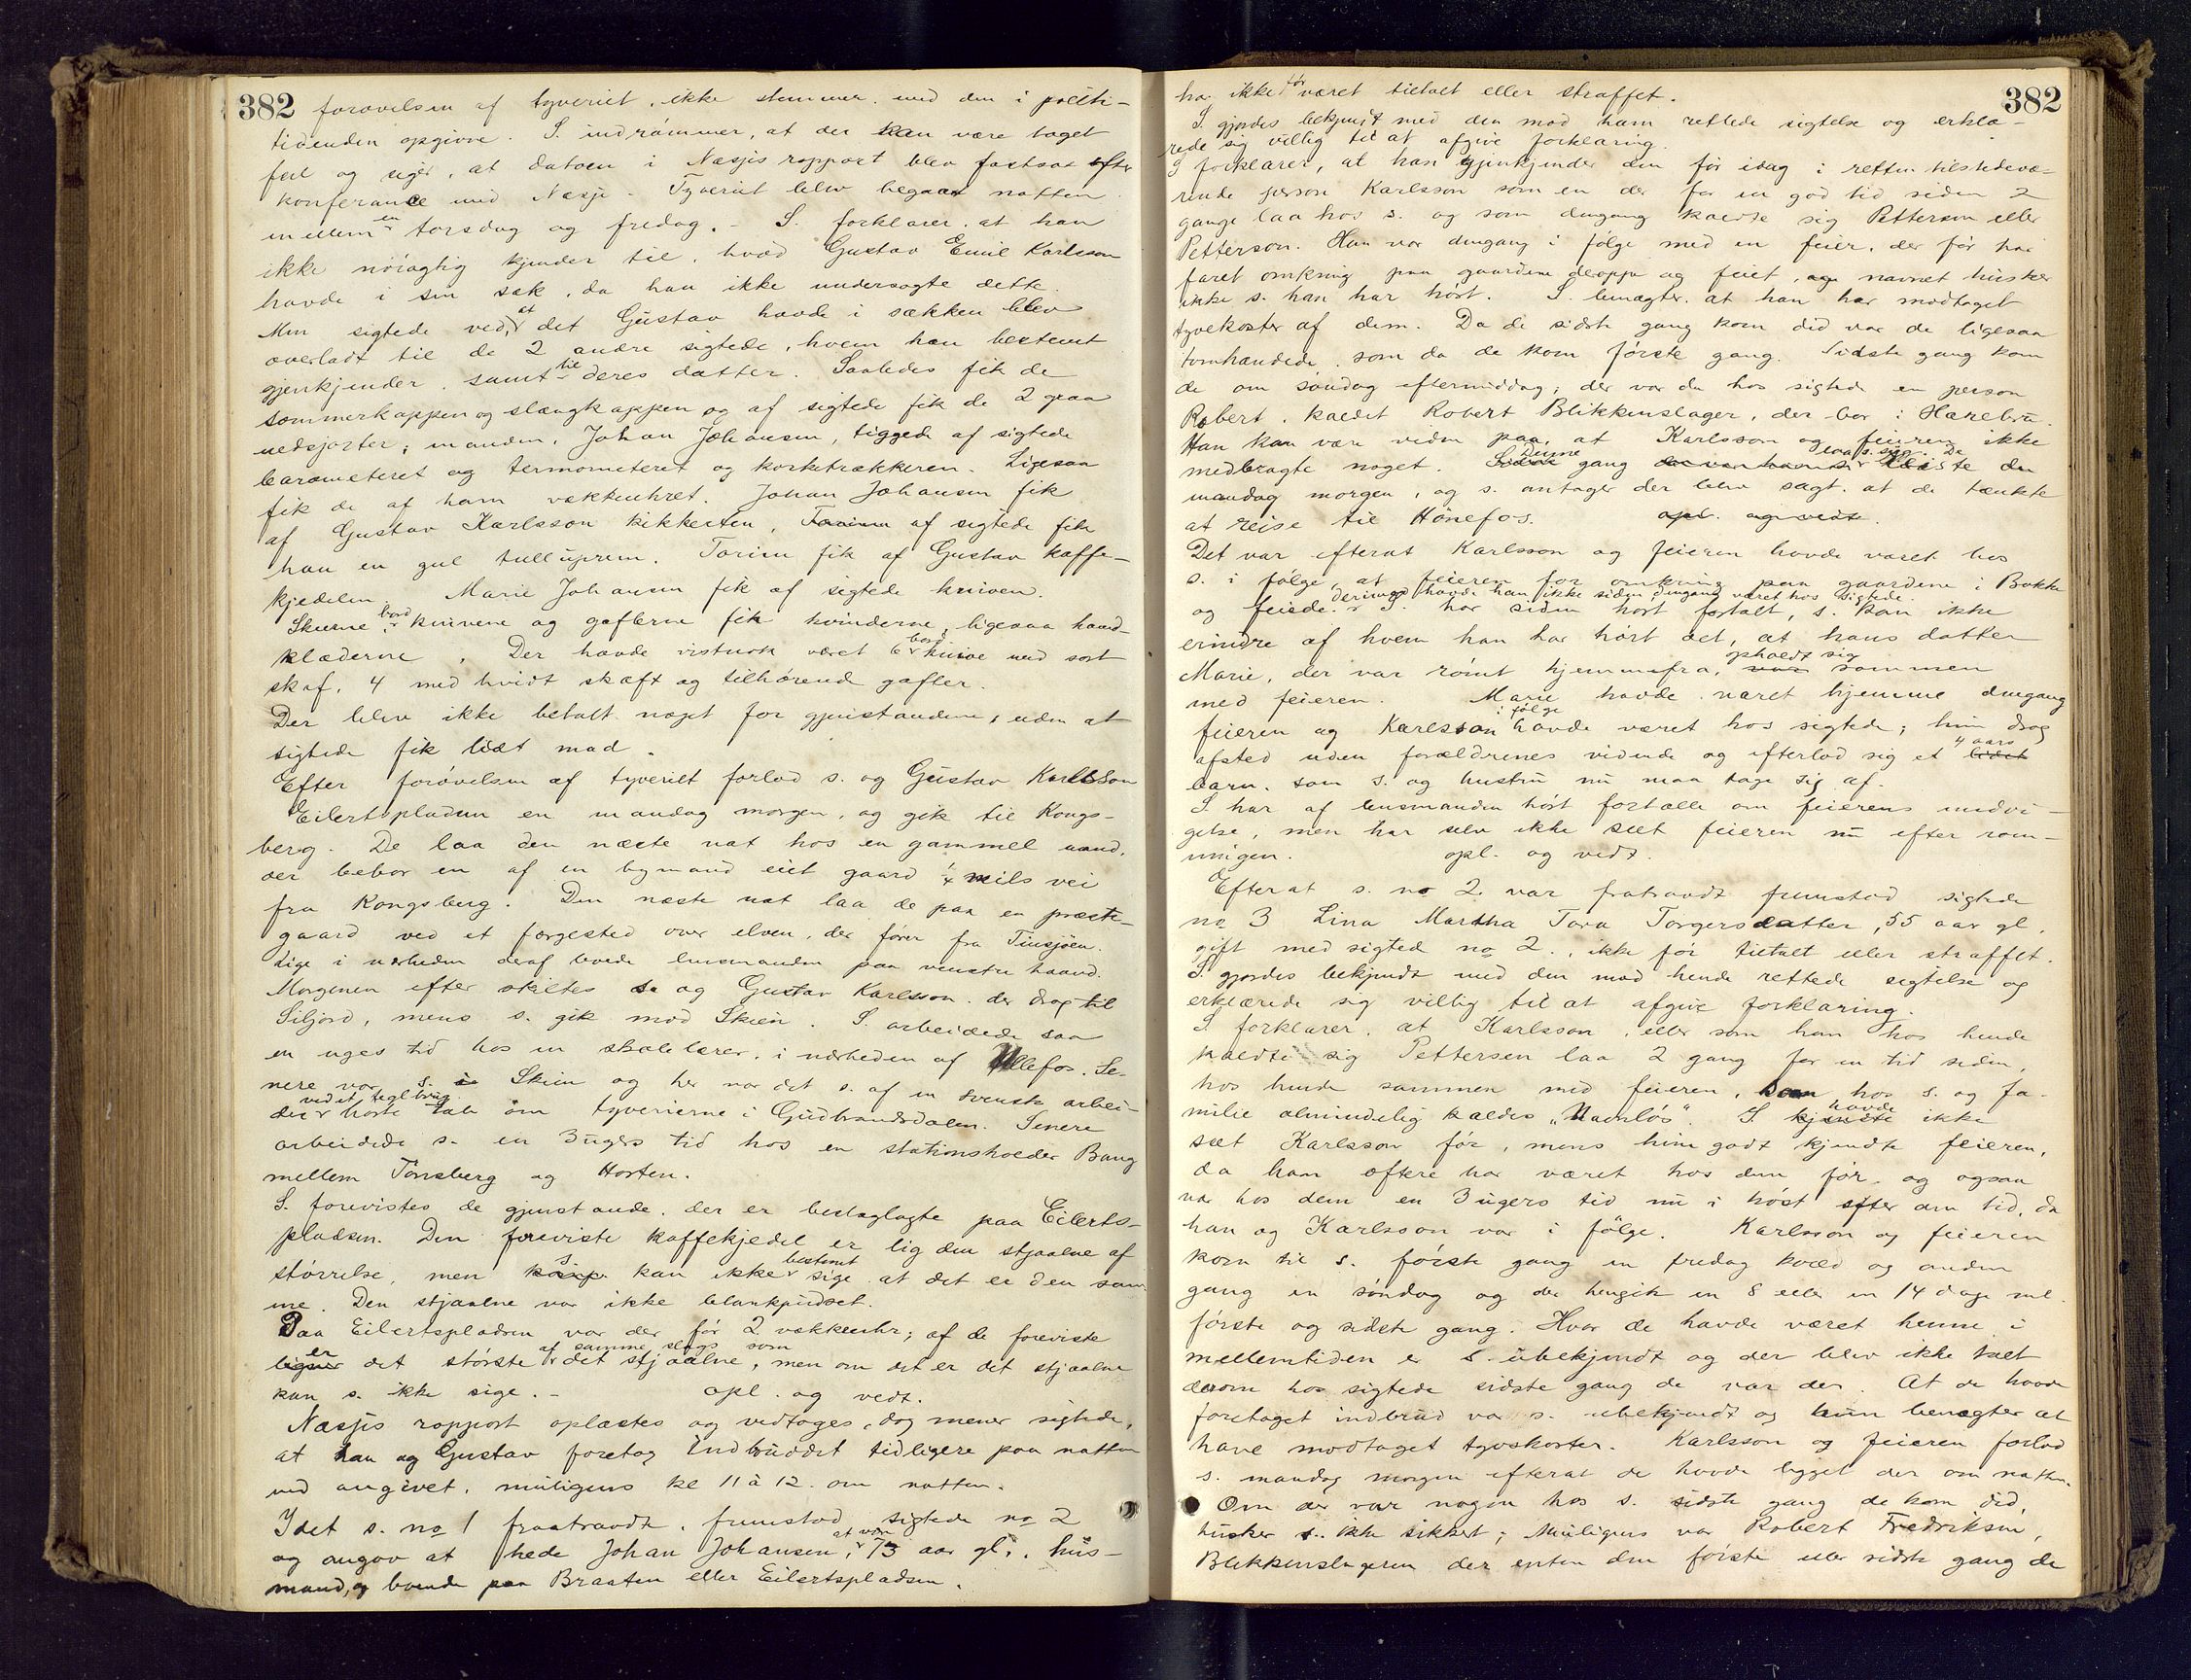 382 forøvelsen af tyveriet, ikke stemmer med den i politi-
tidenden opgivne. S. indrømmer, at der kan være taget
feil og siger, at datoen i Næsjes rapport blev fastsat efter
konferance med Næsje. Tyveriet blev begaaet natten
mellem en torsdag og fredag. - S. forklarer, at han
ikke nøiagtig kjender til, hvad Gustav Emil Karlsson
havde i sin sæk, da han ikke undersøgte dette.
Men sigtede ved, at det Gustav havde i sækken blev
overladt til de 2 andre sigtede, hvem han bestemt
gjenkjender, samt til deres datter. Saaledes fik de
sommerkappen og slængkappen og af sigtede fik de 2 graa
uldsjorter; manden, Johan Johansen, tiggede af sigtede
barometeret og termometeret og korketrækkeren. Ligesaa
fik de af ham vækkeuhret. Johan Johansen fik
af Gustav Karlsson kikkerten, af sigtede fik
han en gul tulluprem. Torine fik af Gustav kaffe-
kjedelen. Marie Johansen fik af sigtede kniven.
Skeerne, bordknivene og gaflerne fik kvinderne, ligesaa haand-
klæderne. Der havde vistnok været 6 bordknive med sort
skaf, 4 med hvidt skæft og tilhørende gafler.
Der blev ikke betalt noget for gjenstandene, uden at
sigtede fik lidt mad.
Efter forøvelsen af tyveriet forlod s. og Gustav Karlsson
Eilertspladsen en mandag morgen, og gik til Kongs-
berg. De laa den næste nat hos en gammel mand,
der bebor en af en bymand eiet gaard 1/4 mils vei
fra Kongsberg. Den næste nat laa de paa en præste-
gaard ved et færgested over elven, der fører fra Tinsjøen.
Lige i nærheden deraf boede lensmanden paa venstre haand.
Morgenen efter skiltes s. og Gustav Karlsson, der drog til
Siljord, mens s. gik mod Skien. S. arbeidede saa
en uges tid hos en skolelærer, i nærheden af Ullefos. Se-
nere var s. i Skien og her var det s. af en svensk arbei-
der ved et teglbrug hørte tale om tyverierne i Gudbrandsdalen. Senere
arbeidede s. en 3 ugers tid hos en stationsholder Bang
mellem Tønsberg og Horten.
S. forevistes de gjenstande, der er beslaglagte paa Eilerts-
pladsen. Den foreviste kaffekjedel er lig den stjaalne af
størrelse, men s. kan ikke bestemt sige at det er den sam-
me. Den stjaalne var ikke blankpudset.
Paa Eilertspladsen var der før 2 vækkeuhr; af de foreviste
er det største af samme slags som det stjaalne, men om det er det stjaalne
kan s. ikke sige. - opl. og vedt.
Næsjes rapport oplæstes og vedtoges, dog mener sigtede,
at han og Gustav foretog indbruddet tidligere paa natten
end angivet, muligens kl 11 à 12 om natten.
Idet s. no 1 fraatraadte, fremstod sigtede no 2
og angav at hede Johan Johansen, at være 73 aar gl., hus-
mand, og boende paa Braaten eller Eilertspladsen.
382
har ikke før været tiltalt eller straffet.
S. gjordes bekjendt med den mod ham rettede sigtelse og erklæ-
rede sig villig til at afgive forklaring.
S forklarer, at han gjenkjender den før idag i retten tilstedevæ-
rende person Karlsson som en der for en god tid siden 2
gange laa hos s. og som dengang kaldte sig Pettersen eller
Petterson. Han var dengang i følge med en feier, der før har
faret omkring paa gaardene deroppe og feiet, navnet husker
ikke s. han har hørt. S. benægter, at han har modtaget
tyvekoster af dem. Da de sidste gang kom did var de ligesaa
tomhændede, som da de kom første gang. Sidste gang kom
de om søndag eftermiddag; der var da hos sigtede en person
Robert, kaldet Robert Blikkenslager, der bor i Harebru.
Han kan være vidne paa, at Karlsson og feieren ikke
medbragte noget. Denne gang laa s. syg. De reiste den
mandag morgen, og s. antager der blev sagt, at de tænkte
at reise til Hønefos. opl. og vedt.
Det var efterat Karlsson og feieren havde været hos
s. i følge, at feieren for omkring paa gaardene i Bakke
og feiede. derimod havde han ikke siden dengang været hos sigtede. S. har siden hørt fortalt, s. kan ikke
erindre af hvem han har hørt det, at hans datter
Marie, der var rømt hjemmefra, opholdt sig sammen
med feieren. Marie havde været hjemme dengang
feieren og Karlsson i følge havde været hos sigtede; hun drog
afsted uden forældrenes vidende og efterlod sig et 4 aars
barn, som s. og hustru nu maa tage sig af.
S har af lensmanden hørt fortælle om feierens undvi-
gelse, men har selv ikke seet feieren nu efter røm-
ningen. opl. og vedt.
Efterat s. no 2. var fratraadt fremstod sigtede
no 3 Lina Martha Tora Torgersdatter, 55 aar gl.
gift med sigted no 2., ikke før tiltalt eller straffet.
S. gjordes bekjendt med den mod hende rettede sigtelse og
erklærede sig villig til at afgive forklaring.
S. forklarer, at Karlsson, eller som han hos hende
kaldte sig Pettersen laa 2 gang for en tid siden,
hos hende sammen med feieren, som hos s. og fa-
milie almindelig kaldes "Navnløs". S. havde ikke
seet Karlsson før, mens hun godt kjendte feieren,
da han oftere har været hos dem før og ogsaa
var hos dem en 3 ugers tid nu i høst efter den tid, da
han og Karlsson var i følge. Karlsson og feieren
kom til s. første gang en fredag kvæld og anden
gang en søndag og der hengik en 8 eller en 14 dage ml.
første og sidste gang. Hvor de havde været henne i
mellemtiden er s. ubekjendt og der blev ikke talt
derom hos sigtede sidste gang de var der. At de havde
foretaget indbrud var s. ubekjendt og hun benægter at
have modtaget tyvekoster. Karlsson og feieren forlod
s. mandag morgen efterat de havde ligget der om natten.
Om der var nogen hos s. sidste gang de kom did,
husker s. ikke sikkert; muligens var Robert Fredriksen,
Blikkenslageren der enten den første eller sidste gang de